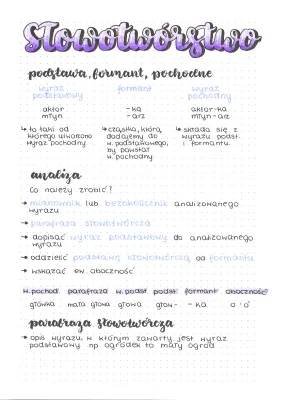 słowotwórstwo
podstawa, formant, pochodne
wyraz podstawowy
formant
wyraz pochodny
aktor
młyn
-ka
-arz
aktor-ka
młyn-arz
↳ to taki od
którego utworzono
wyraz pochodny
↳ cząstka, którą
dodajemy do
w. podstawowego,
by powstał
w. pochodny
↳ składa się z
wyrazu podst.
i formantu
analiza
Co należy zrobić?
→ mianownik lub bezokolicznik analizowanego
wyrazu
→ parafraza słowotwórcza
→ dopisać wyraz podstawowy do analizowanego
wyrazu
→ oddzielić podstawę słowotwórczą od formantu
→ wskazać ew. oboczność
w. pochod. parafraza w. podst. podst. formant oboczność
główka mała głowa głowa głow- -ka o:ó
parafraza słowotwórcza
→ opis wyrazu, w którym zawarty jest wyraz
podstawowy np. ogródek to mały ogród